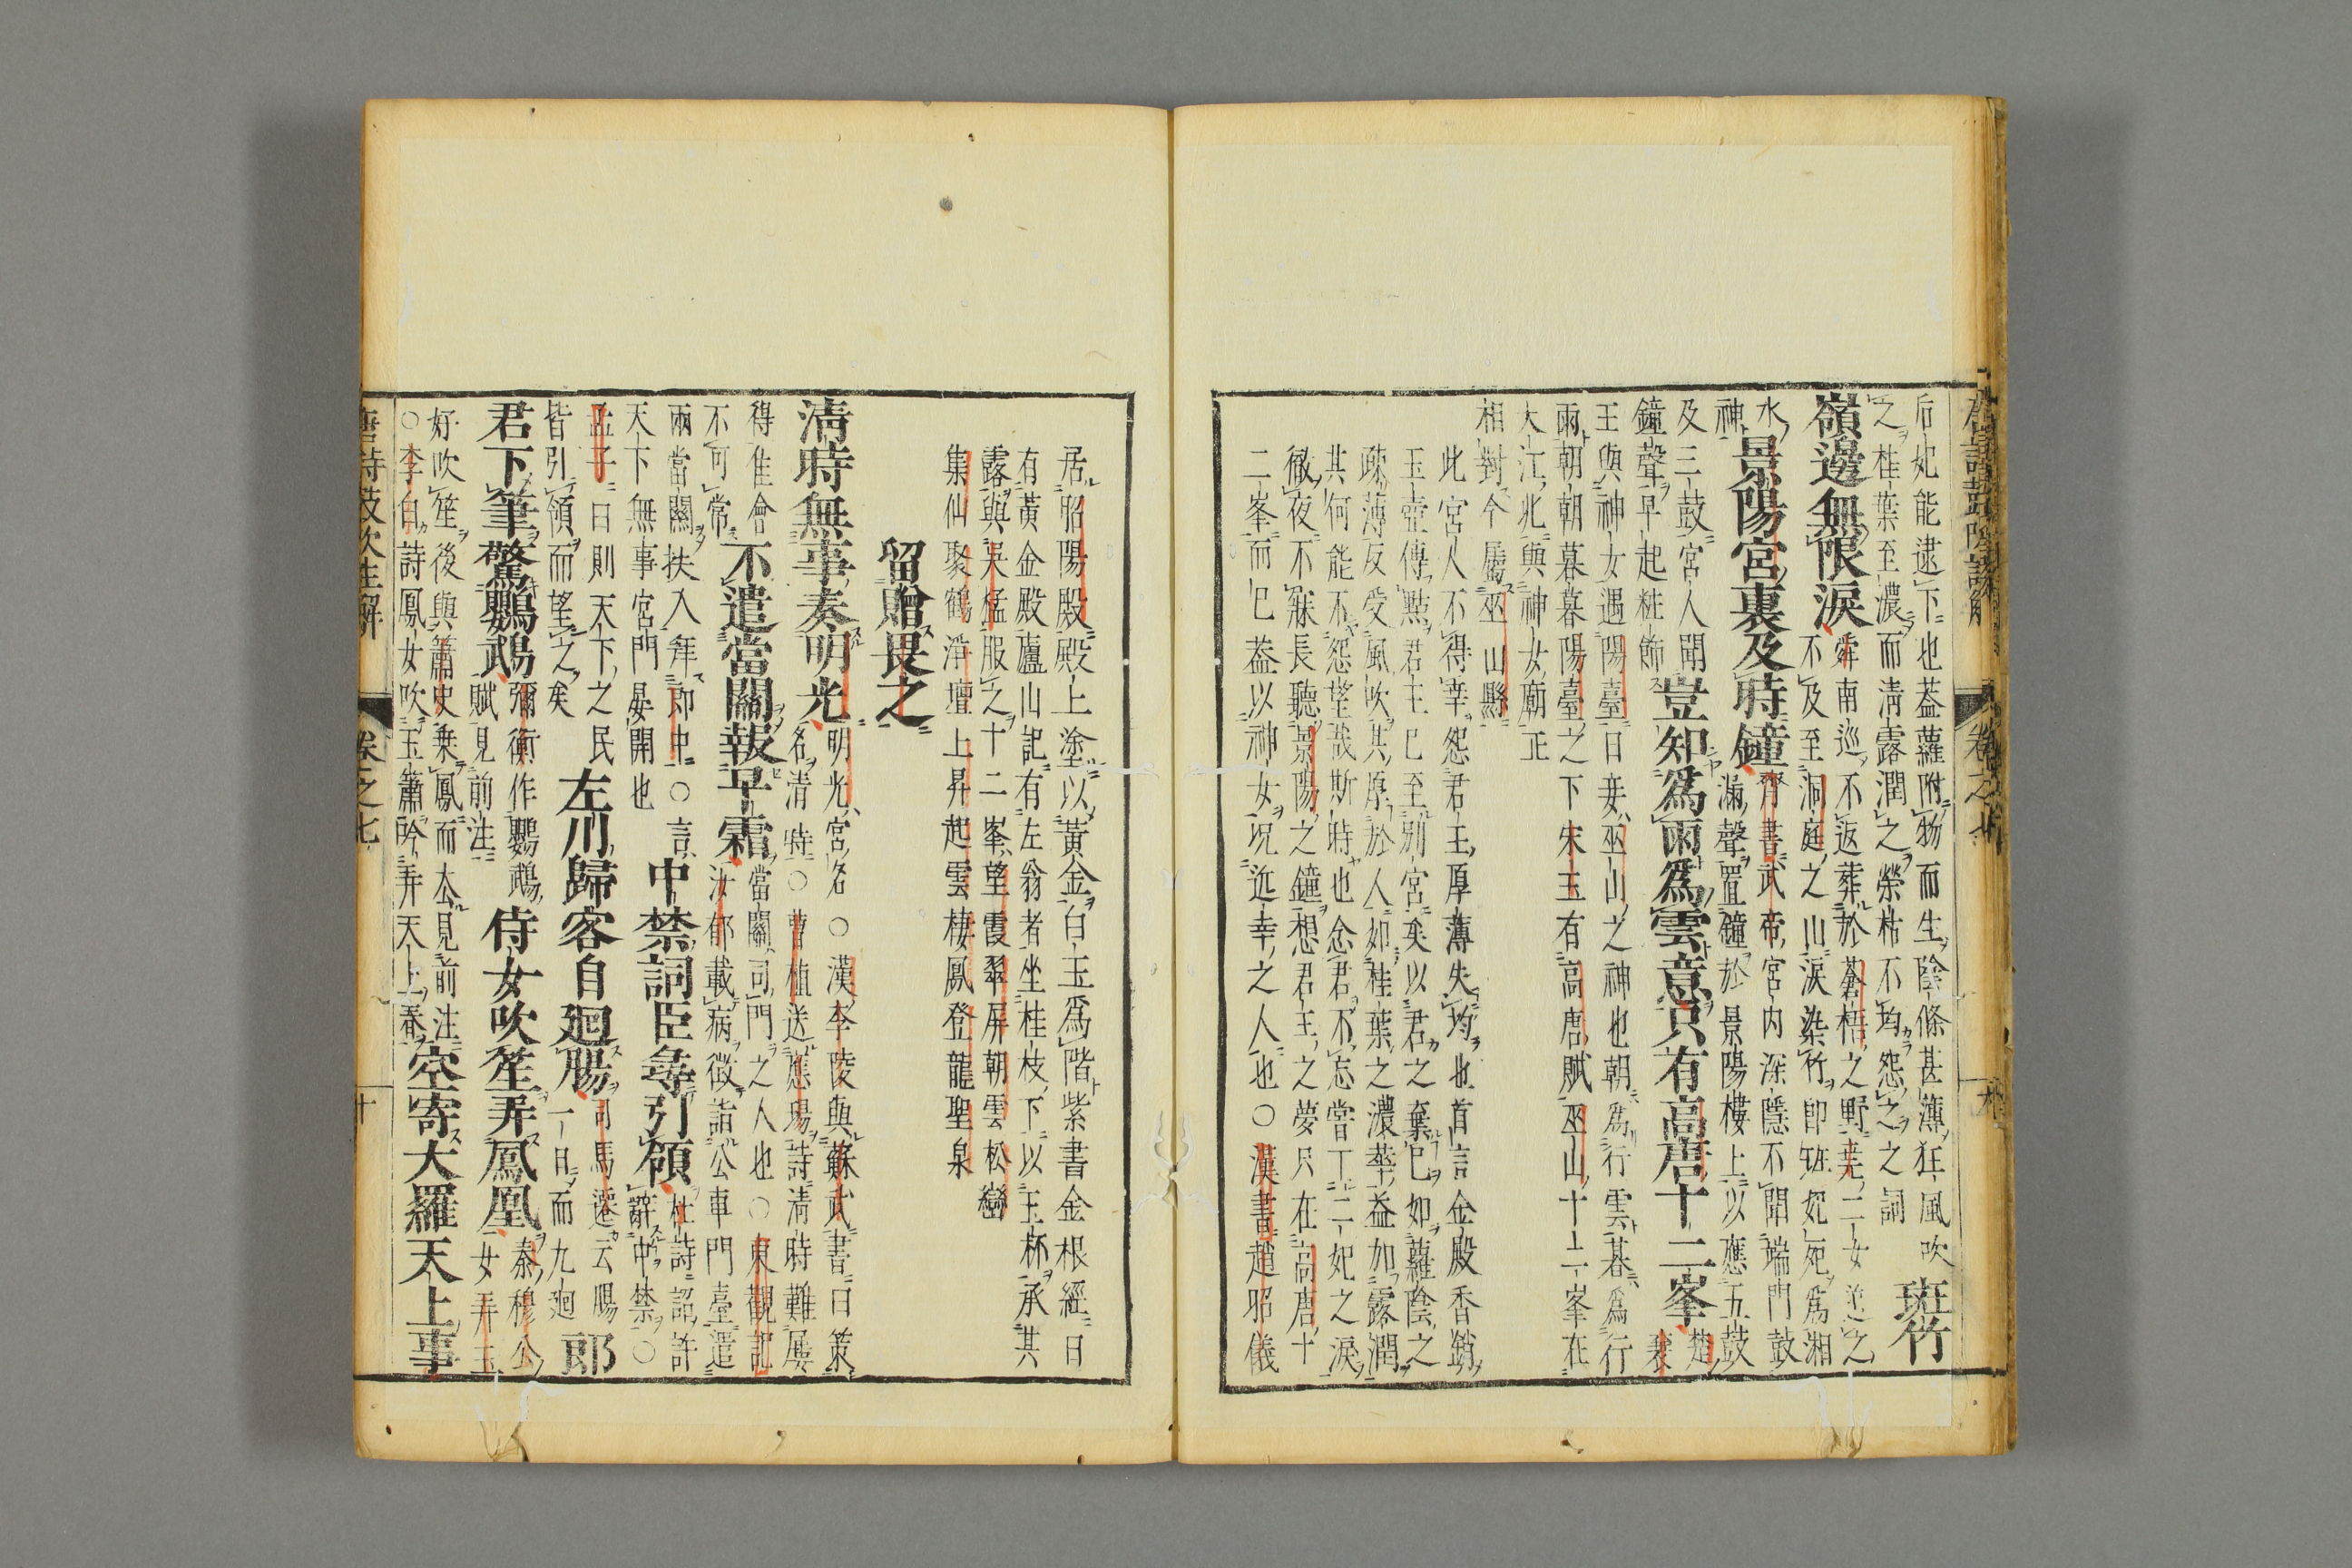 后妃能逮下也葢蘿附物而生陰條甚薄狂風吹
之桂葉至濃而淸露潤之榮枯不均怨之之詞
斑竹
嶺邊無限淚
舜南巡不返葬於蒼梧之野堯二女追之
不及至洞庭之山淚染竹卽斑妃死爲湘
水神
景陽宮裏及時鐘
齊書武帝宮內深隱不聞端門鼓
漏聲置鐘於景陽樓上以應五鼓
及三鼓宮人聞
鐘聲早起粧飾
豈知爲雨爲雲意只有高唐十二峯
楚襄
王與神女遇陽臺曰妾巫山之神也朝爲行雲暮爲行
雨朝朝暮暮陽臺之下宋玉有高唐賦巫山十二峯在
大江北與神女廟正
相對今屬巫山縣
此宮人不得幸怨君王厚薄失均也首言金殿香鎖
玉壺傳點君王已至別宮矣以君之棄已如蘿陰之
疎薄反受風吹其厚於人如桂葉之濃華益加露潤
其何能不怨望哉斯時也念君不忘嘗下二妃之淚
徹夜不寐長聽景陽之鐘想君王之夢只在高唐十
二峯而已葢以神女況近幸之人也○漢書趙昭儀
居昭陽殿殿上塗以黃金白玉爲階紫書金根經曰
有黃金殿廬山記有左翁者坐桂枝下以玉杯承其
露與吳猛服之十二峯望霞翠屏朝雲松巒
集仙聚鶴淨壇上昇起雲棲鳳登龍聖泉
留贈畏之
淸時無事奏明光
明光宮名○漢李陵與蘇武書曰策
名淸時○曹植送應瑒詩淸時難屢
得佳會
不可常
不遣當關報早霜
當關司門之人也○東觀記
汝郁載病徵詣公車門臺遣
兩當關扶入拜郎中○言
天下無事宮門晏開也
中禁詞臣尋引領
杜詩詔許
辭中禁○
孟子曰則天下之民
皆引領而望之矣
左川歸客自廻腸
司馬遷云腸
一日而九廻
郎
君下筆驚鸚鵡
彌衡作鸚鵡
賦見前注
侍女吹笙弄鳳凰
秦穆公
女弄玉
好吹笙後與簫史乗鳳而去見前注
○李白詩鳳女吹玉簫吟弄天上春
空寄大羅天上事
唐詩鼓吹註解 卷之七 十